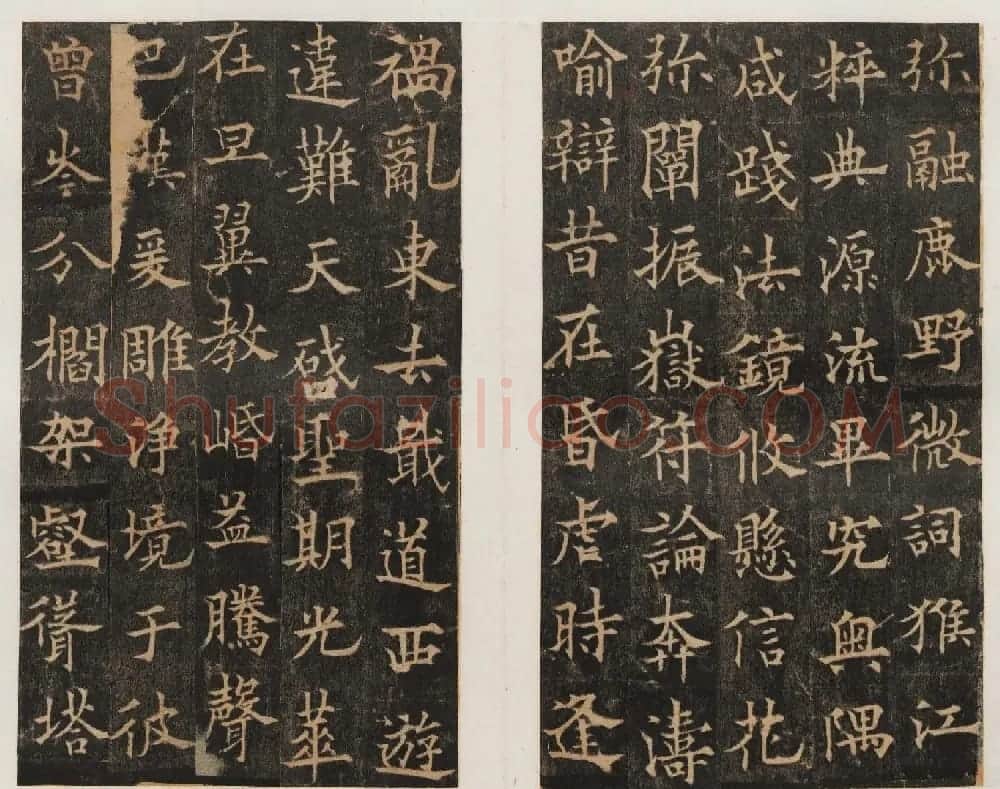 弥融鹿野微詞猴江
粹典源流畢究奥隅
咸踐法鏡攸懸信花
弥闡振嶽符論奔濤
喻辯昔在昏虐時逢
禍亂東去戢道西遊
違難天啓聖期光華
在旦翼教崏益騰聲
巴漢爰雕淨境于彼
曾岑分欄架壑聳塔
Shufaziliao.COM